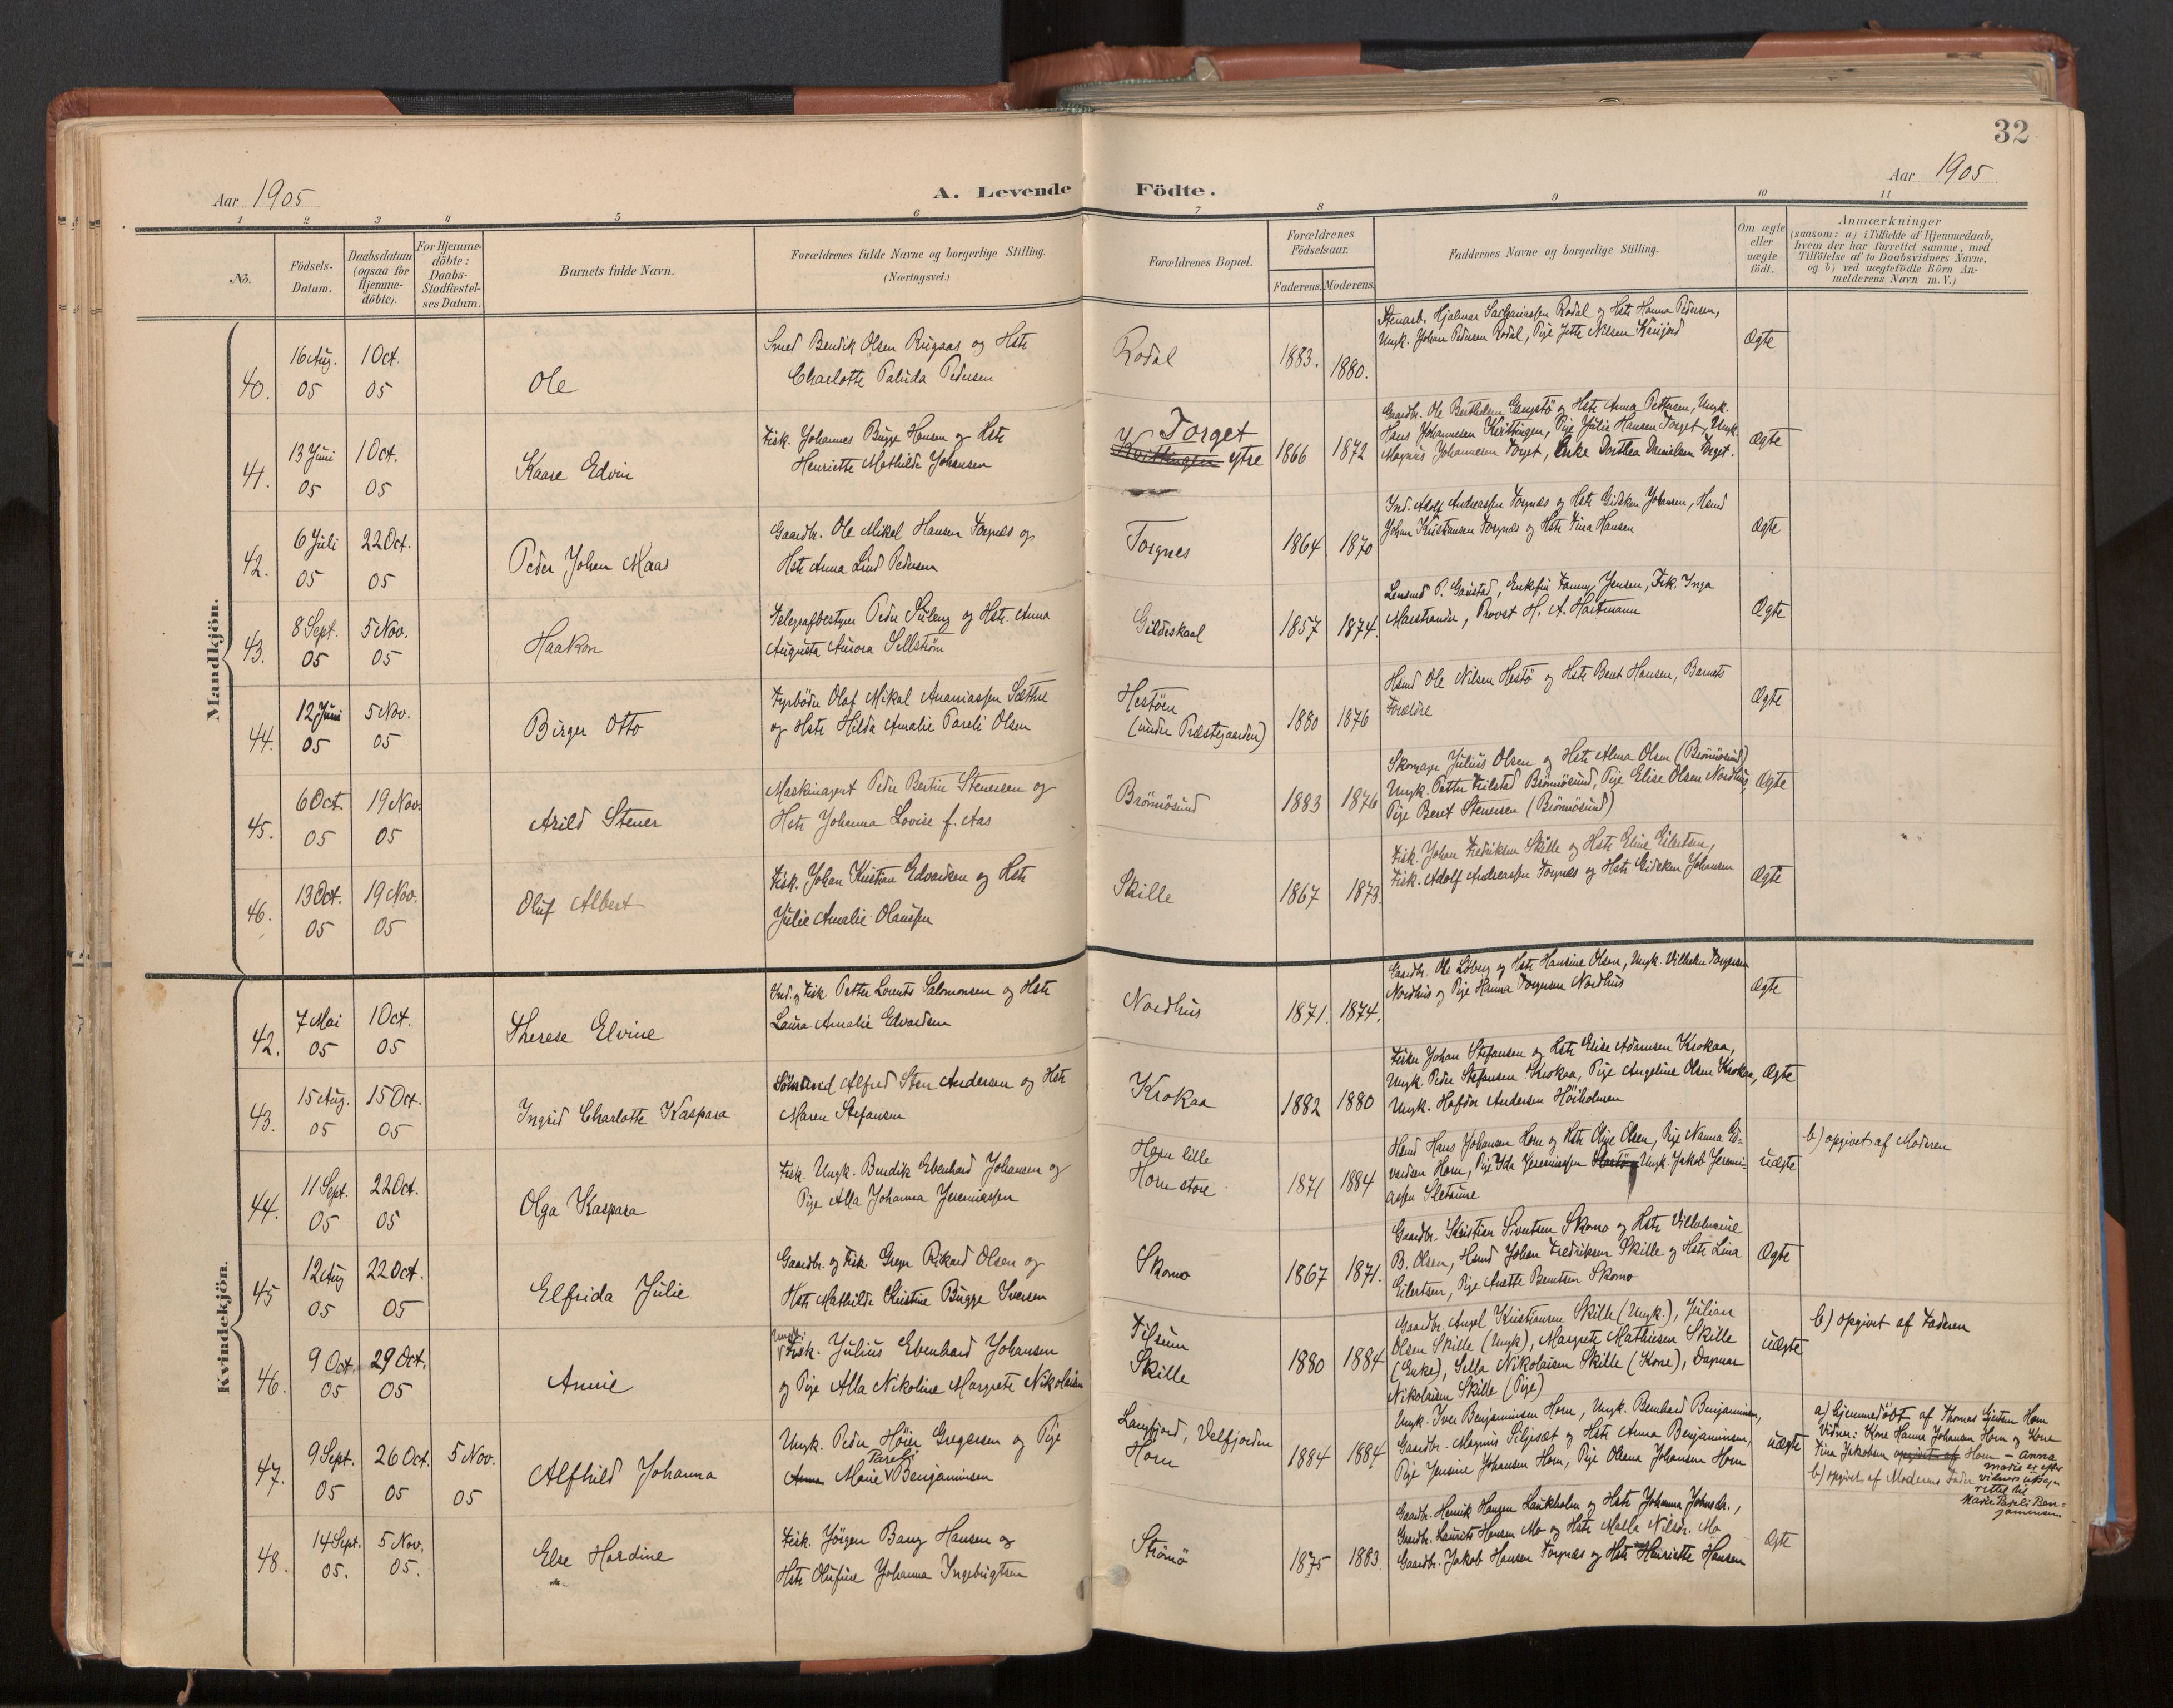 32
Aar 1905
A. Levende Födte.
Aar 1905
1 2 3 4 5 6 7 8 9 10 11
No.
Födsels-
Datum.
Daabsdatum
(ogsaa for
Hjemme-
döbte).
For Hjemme-
döbte:
Daabs-
Stadfæstel-
ses Datum.
Barnets fulde Navn.
Forældrenes fulde Navne og borgerlige Stilling.
(Næringsvei.)
Forældrenes Bopæl.
Forældrenes
Födselsaar.
Faderens. Moderens.
Faddernes Navne og borgerlige Stilling.
Om ægte
eller
uægte
födt.
Anmærkninger
(saasom: a) i Tilfælde af Hjemmedaab,
hvem der har forrettet samme, med
Tilföielse af to Daabsvidners Navne,
og b) ved uægtefödte Börn An-
melderens Navn m. V.)
Mandkjön.
40.
16 Aug.
05
1 Oct.
05
Ole
Smed Bendik Olsen Rugaas og Hstr
Charlotte Paluda Pedersen
Rodal
1883. 1880.
Stenarb. Hjalmar Sachariassen Rodal og Hstr Hanna Pedersen,
Ungk. Johan Pedersen Rodal, Pige Jette Nilsen
Ægte
41.
13 Juni
05
1 Oct.
05
Kaare Edvin
Fisk. Johannes Bugge Hansen og Hstr
Henriette Mathilde Johansen
Torget
Kvittingen ytre
1866 1872
Gaardbr. Ole Berthelsen og Hstr Anna Pettersen, Ungk.
Hans Johannesen Kvittingen, Pige Julie Hansen Torget, Ungk.
Magnus Johannesen Torget, Enke Dorthea Danielsen Torget.
Ægte
42.
6 Juli
05
22 Oct.
05
Peder Johan Maas
Gaardbr. Ole Mikal Hansen Torgnæs og
Hstr Anna Lind Pedersen
Torgnes
1864 1870
Ind. Adolf Andreassen Torgnæs og Hstr Gidsken Johansen, Hsmd
Johan Kristiansen Torgnæs og Hstr Fina Hansen
Ægte
43.
8 Sept.
05
5 Nov.
05
Haakon
Telegrafbestyrer Peder Suleng og Hstr. Anna
Augusta Aurora Sellström
Gildeskaal
1857 1874.
Lensmd P. Gaustad, Enkefru Fanny Jensen, Frk. Inga
Marstrander, Provst H. A. Hartmann
Ægte
44.
12 Juni
05
5 Nov.
05
Birger Otto
Fyrböder Olaf Mikal Ananiassen Sæther
og Hstr Hilda Amalie Pareli Olsen
Hestöen
(under Præstegaarden)
1880 1876
Hsmd Ole Nilsen Hestö og Hstr Berit Hansen, Barnets
Forældre
Ægte
45.
6 Oct.
05
19 Nov.
05
Arild Stener
Maskinagent Peder Bertin Stenersen og
Hstr Johanna Lovise f. Aas
Brönnösund
1883 1876
Skomager Julius Olsen og Hstr Alma Olsen (Brönnösund)
Ungk. Petter Brönnösund, Pige Elise Olsen Nordhus,
Pige Beret Stenersen (Brönnösund)
Ægte
46.
13 Oct.
05
19 Nov.
05
Oluf Albert
Fisk. Johan Kristian Edvardsen og Hstr
Julie Amalie Olaussen
Skille
1867 1873.
Fisk. Johan Fredriksen Skille og Hstr Eline Eilertsen,
Fisk. Adolf Andreassen Torgnæs og Hstr Gidsken Johansen
Ægte
Kvindekjön.
42.
7 Mai
05
1 Oct.
05
Therese Elvine
Ind. og Fisk. Petter Lorents Salomonsen og Hstr
Laura Amalie Edvardsen
Nordhus
1871. 1874.
Gaardbr. Ole Löberg og Hstr Hansine Olsen, Ungk. Vilhelm Torgersen
Nordhus og Pige Hanna Torgersen Nordhus
Ægte
43.
15 Aug.
05
15 Oct.
05
Ingrid Charlotte Kaspara
Sömand Alfred Sten Andersen og Hstr
Maren Stefansen
Krokaa
1882 1880
Fisker Johan Stefansen og Hstr Elise Adamsen Krokaa,
Ungk. Peder Stefansen Krokaa, Pige Angeline Olsen Krokaa,
Ungk. Hafdor Andersen Höiholmen
Ægte
44.
11 Sept.
05
22 Oct.
05
Olga Kaspara
Fisk. Ungk. Bendik Ebenhard Johansen og
Pige Alla Johanna Jeremiassen
Horn lille
Horn store
1871 1884
Hsmd Hans Johansen Horn og Hstr Oline Olsen, Pige Nanna Ed-
vardsen Horn, Pige Ida Jeremiassen Ungk. Jakob Jeremi-
assen Sletsune
uægte
b) opgivet af Moderen
45
12 Aug
05
22 Oct.
05
Elfrida Julie
Gaardbr. og Fisk. Greger Rikard Olsen og
Hstr Mathilde Kristine Bugge Iversen
Skomo
1867 1871.
Gaardbr. Kristian Sivertsen Skomo og Hstr Villelmine
B. Olsen, Hsmd Johan Fredriksen Skille og Hstr Lina
Eilertsen, Pige Anette Berntsen Skomo
Ægte
46.
9 Oct.
05
29 Oct.
05
Annie
Ungk.
Fisk. Julius Ebenhard Johansen
og Pige Alla Nikoline Margrete Nikolaisen
Tilrum
Skille
1880 1884
Gaardbr. Angel Kristiansen Skille (Ungk.), Julian
Olsen Skille (Ungk), Margrete Mathiesen Skille
(Enke), Sella Nikolaisen Skille (Kone), Dagmar
Nikolaisen Skille (Pige)
uægte
b) opgivet af Faderen
47.
9 Sept.
05
26 Oct.
05
5 Nov.
05
Alfhild Johanna
Ungk. Peder Höier Gregersen og Pige
Pareli
Anna Marie Benjaminsen
Langfjord, Velfjorden
Horn
1884 1884
Ungk. Iver Benjaminsen Horn, Ungk. Bernhard Benjaminsen,
Gaardbr. Magnus Siljesæt og Hstr Anna Benjaminsen,
Pige Jensine Johansen Horn, Pige Olena Johansen Horn
uægte
a) hjemmedöbt af Thomas Horn
Vidner: Kone Hanna Johansen Horn og Kone
Fina Jakobsen opgivet af Horn – Anna
Marie er efter
b) opgivet af Moderens Fader vidners udsagn
rettet til
Marie Pareli Ben-
jaminsen
48.
14 Sept.
05.
5 Nov.
05.
Else Hardine
Fisk. Jörgen Bang Hansen og
Hstr Olufine Johanna Ingebrigtsen
Strömö
1875 1883
Gaardbr. Henrik Hansen Laukholm og Hstr Johanna Johnsdr.,
Gaardbr. Laurits Hansen Mo og Hstr Malla Nilsdr. Mo
Gaardbr. Jakob Hansen Torgnæs og Hstr Henriette Hansen
Ægte